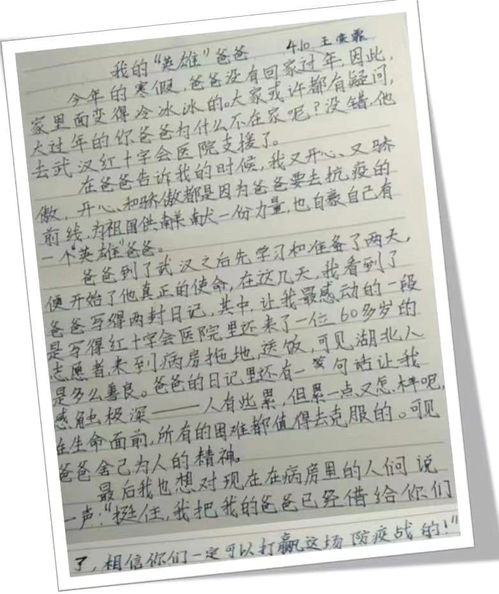 我的“英雄”爸爸 4.10 王
今年的寒假，爸爸没有回家过年，因此，
家里面变得冷冰冰的。大家或许都有疑问，
大过年的你爸爸为什么不在家呢？没错，他
去武汉红十字会医院支援了。
在爸爸告诉我的时候，我又开心、又骄
傲，开心、和骄傲都是因为爸爸要去抗疫的
前线，为祖国供献一份力量，也自豪自己有
一个“英雄”爸爸。
爸爸到了武汉之后先学习和准备了两天，
便开始了他真正的使命，在这几天，我看到了
爸爸写得两封日记，其中，让我最感动的一段
是写得红十字会医院里还来了一位60多岁的
志愿者来到病房拖地，送饭，可见湖北人
是多么善良。爸爸的日记里还有一句话让我
感触极深——人有些累，但累一点又怎样呢，
在生命面前，所有的困难都值得去克服的。可见
爸爸舍己为人的精神。
最后我也想对现在在病房里的人们说
一声：“挺住，我把我的爸爸已经借给你们
了，相信你们一定可以打赢这场防疫战的！”